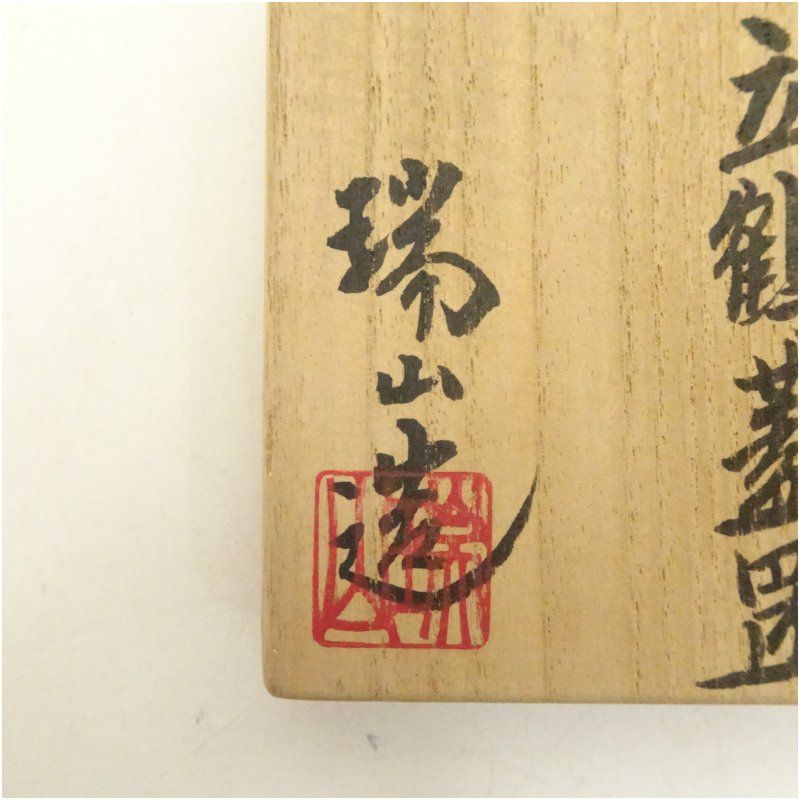 立鶴蓋置
瑞山造